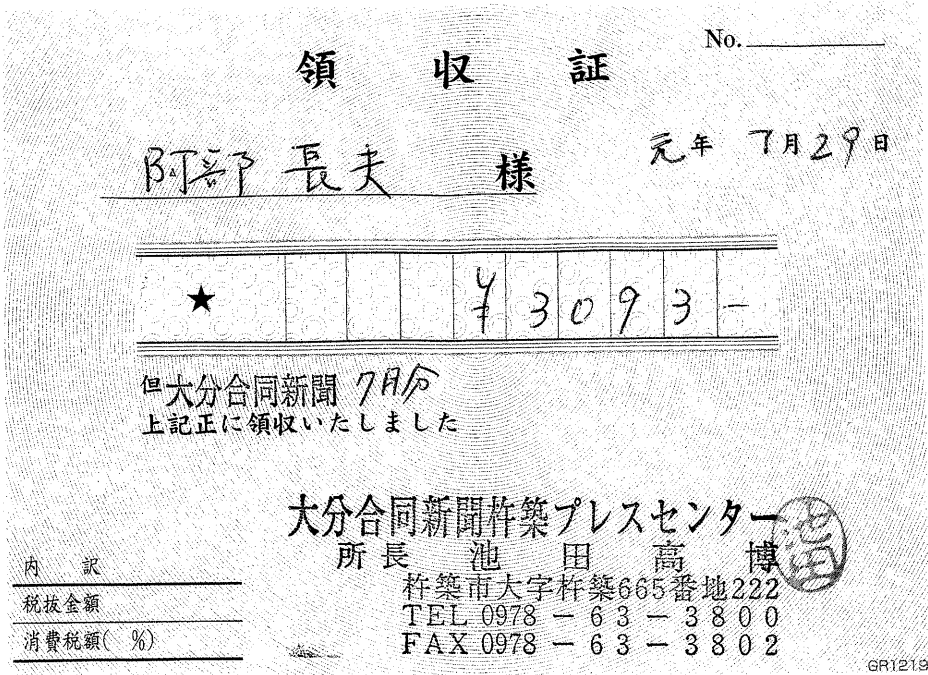 No.
領収証
阿部 長夫 様
元年 7月29日
★ ¥3093-
但大分合同新聞 7月分
上記正に領収いたしました
大分合同新聞杵築プレスセンター
所長 池田高博
池田
杵築市大字杵築665番地222
TEL 0978-63-3800
FAX 0978-63-3802
内訳
税抜金額
消費税額( %)
GR1219